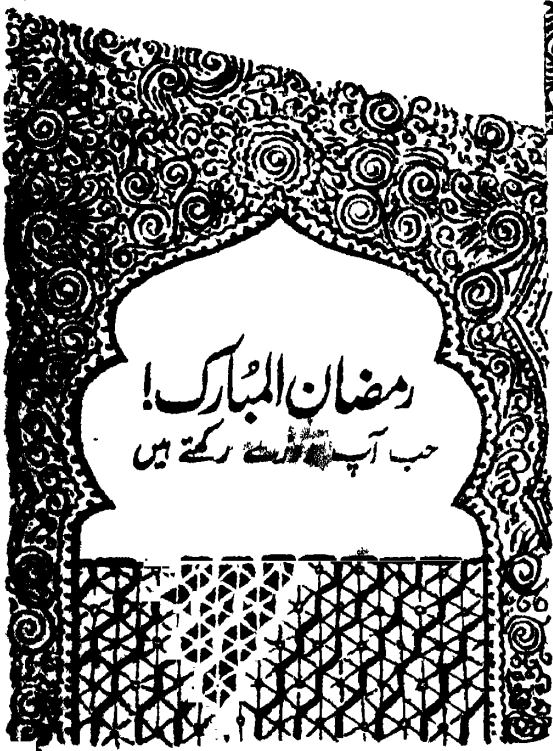 رمضان المبارک!
جب آپ رکھتے ہیں